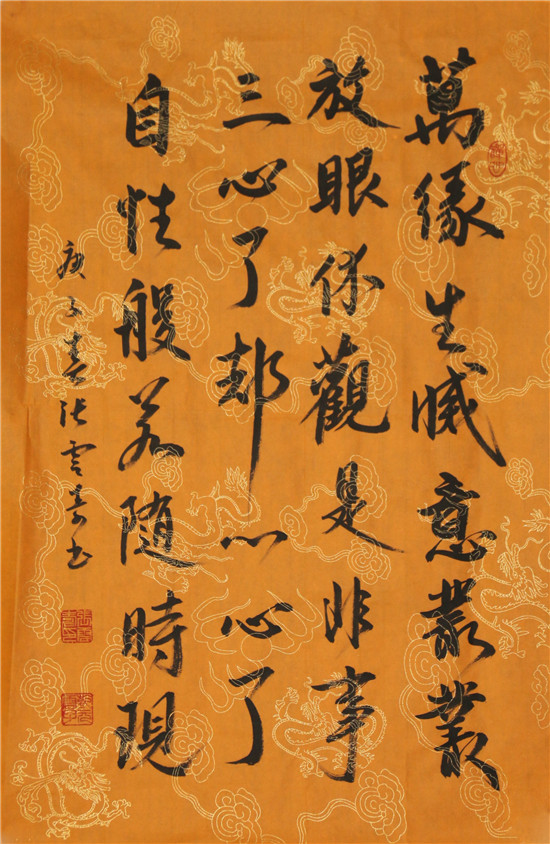 萬緣生滅意叢叢
放眼你觀是非事
三心了却一心了
自性般若随時現
庚子春张雲书